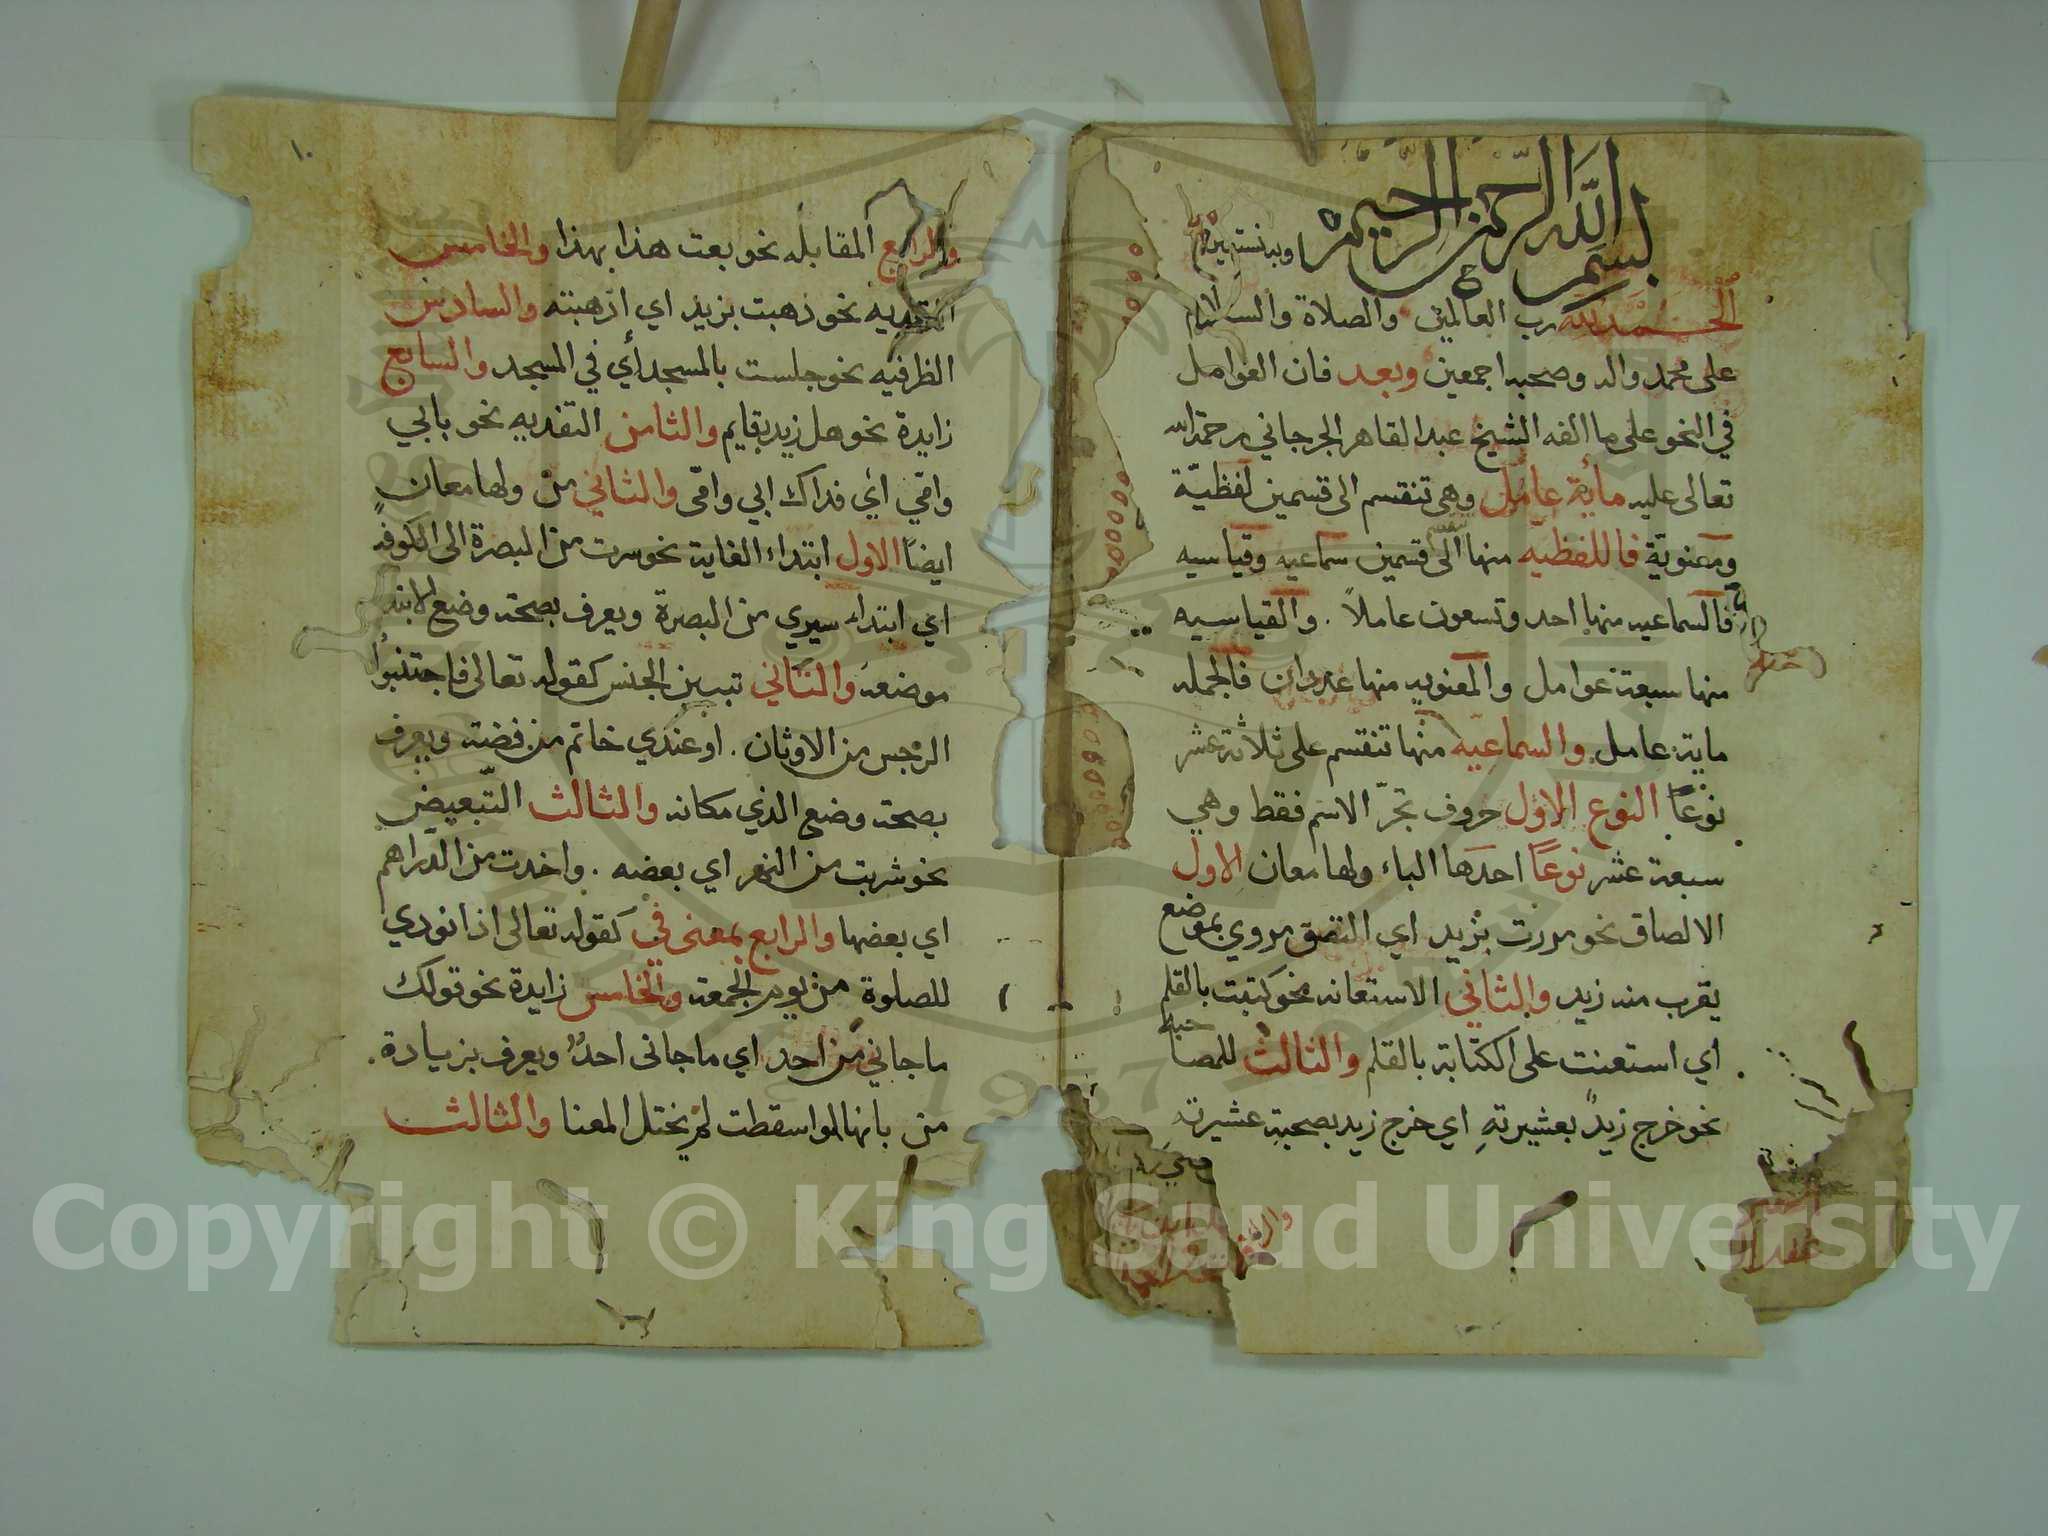 بسم الله الرحمن الرحيم وبه نستعين
الحمد لله رب العالمين والصلاة والسلام
على محمد واله وصحبه اجمعين وبعد فان العوامل
في النحو على ما الفه الشيخ عبد القاهر الجرجاني رحمة الله
تعالى عليه ماية عامل وهي تنقسم الى قسمين لفظيّة
ومعنويّة فاللفظيه منها تنقسم الى قسمين سماعيه وقياسيه
فالسماعيه منها احد وتسعون عاملاً . والقياسيه
منها سبعة عوامل والمعنويه منها عددان فالجمله
ماية عامل والسماعيّه منها تنقسم على ثلاثة عشر
نوعًا النوع الاول حروف تجرّ الاسم فقط وهي
سبعة عشر نوعًا احدها الباء ولها معان الاول
الالصاق نحو مررت بزيد اي التصق مروري بموضع
يقرب منه زيد والثاني الاستعانه نحو كتبت بالقلم
اي استعنت على الكتابة بالقلم والثالث للمصاحبه
نحو خرج زيدٌ بعشيرتهِ اي خرج زيد بصحبةِ عشيرتهِ
١٠
والرابع المقابله نحو بعت هذا بهذا والخامس
التعديه نحو ذهبت بزيد اي اذهبته والسادس
الظرفيه نحو جلست بالمسجد أي في المسجد والسابع
زايدة نحو هل زيد بقايم والثامن التفديه نحو بابي
وامّي أي فداك ابي وامّى والثاني منْ ولها معانٍ
ايضاً الاول ابتداء الغاية نحو سرت من البصرة الى الكوفه
اي ابتداء سيري من البصرة ويعرف بصحة وضع الابتدا
موضعه والثاني تبيين الجنس كقوله تعالى فاجتنبوا
الرجس من الاوثان . او عندي خاتم من فضة ويعرف
بصحة وضع الذي مكانه والثالث التّبعيض
نحو شربت من النهر اي بعضه . واخدت من الدّراهم
اي بعضها والرابع بمعنى في كقوله تعالى اذا نودي
للصلوة من يوم الجمعة والخامس زايدة نحو قولك
ما جاني من احد اي ما جانى احدٌ ويعرف بزيادة .
من بانها لو اسقطت لم يختل المعنا والثالث
Copyright © King Saud University
1957